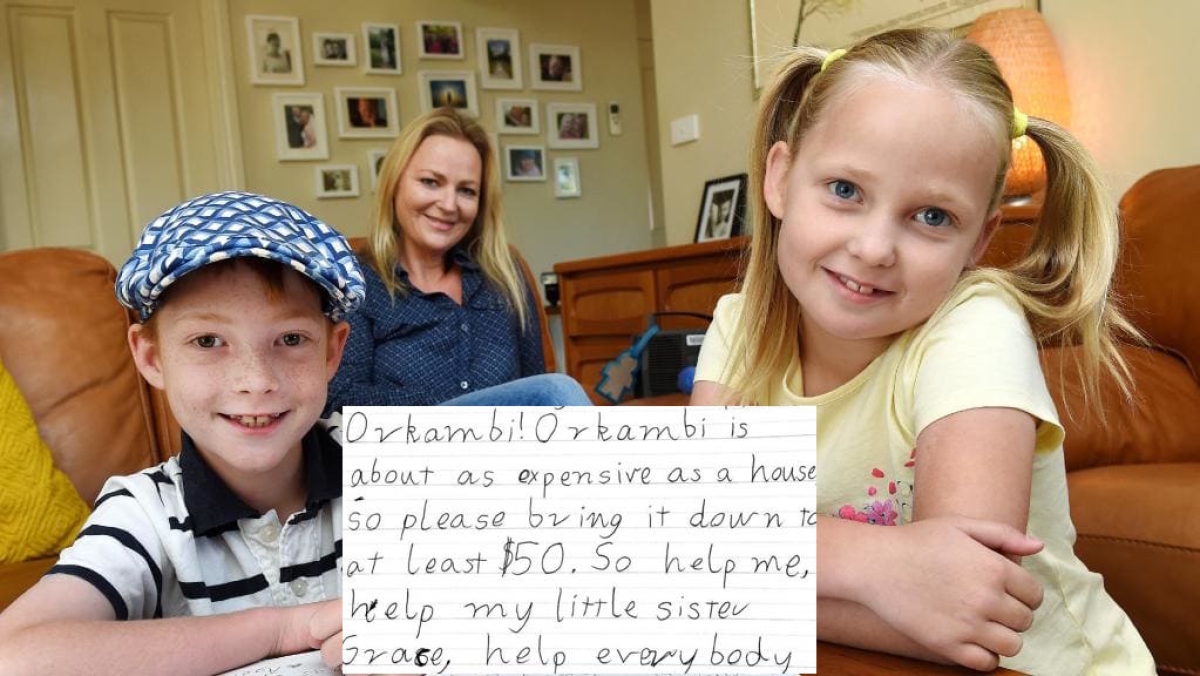 Orkambi! Orkambi is
about as expensive as a house
so please bring it down to
at least $50. So help me,
help my little sister
Grace, help everybody